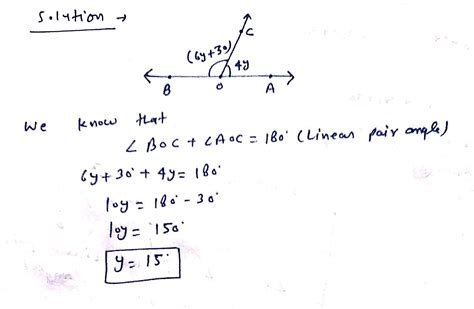 Solution →
C
(6y+30)
4y
B
O
A
We know that
∠BOC + ∠AOC = 180° (Linear pair angle)
6y + 30° + 4y = 180°
10y = 180° - 30°
10y = 150°
y = 15°